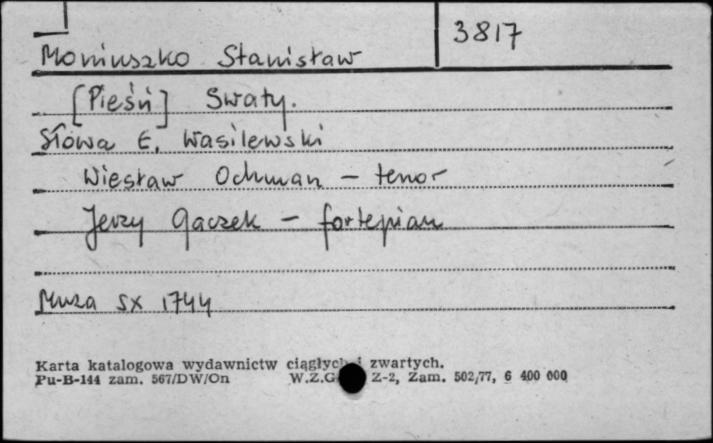 3817
Moniuszko Stanisław
[Pieśń] Swaty.
Słowa E. Wasilewski
Wiesław Ochman – tenor
Jerzy Gaczek – fortepian
Muza SX 1744
Karta katalogowa wydawnictw ciągłych i zwartych.
Pu-B-144 zam. 567/DW/On W.Z.G. Z-2, Zam. 502/77, 6 400 000